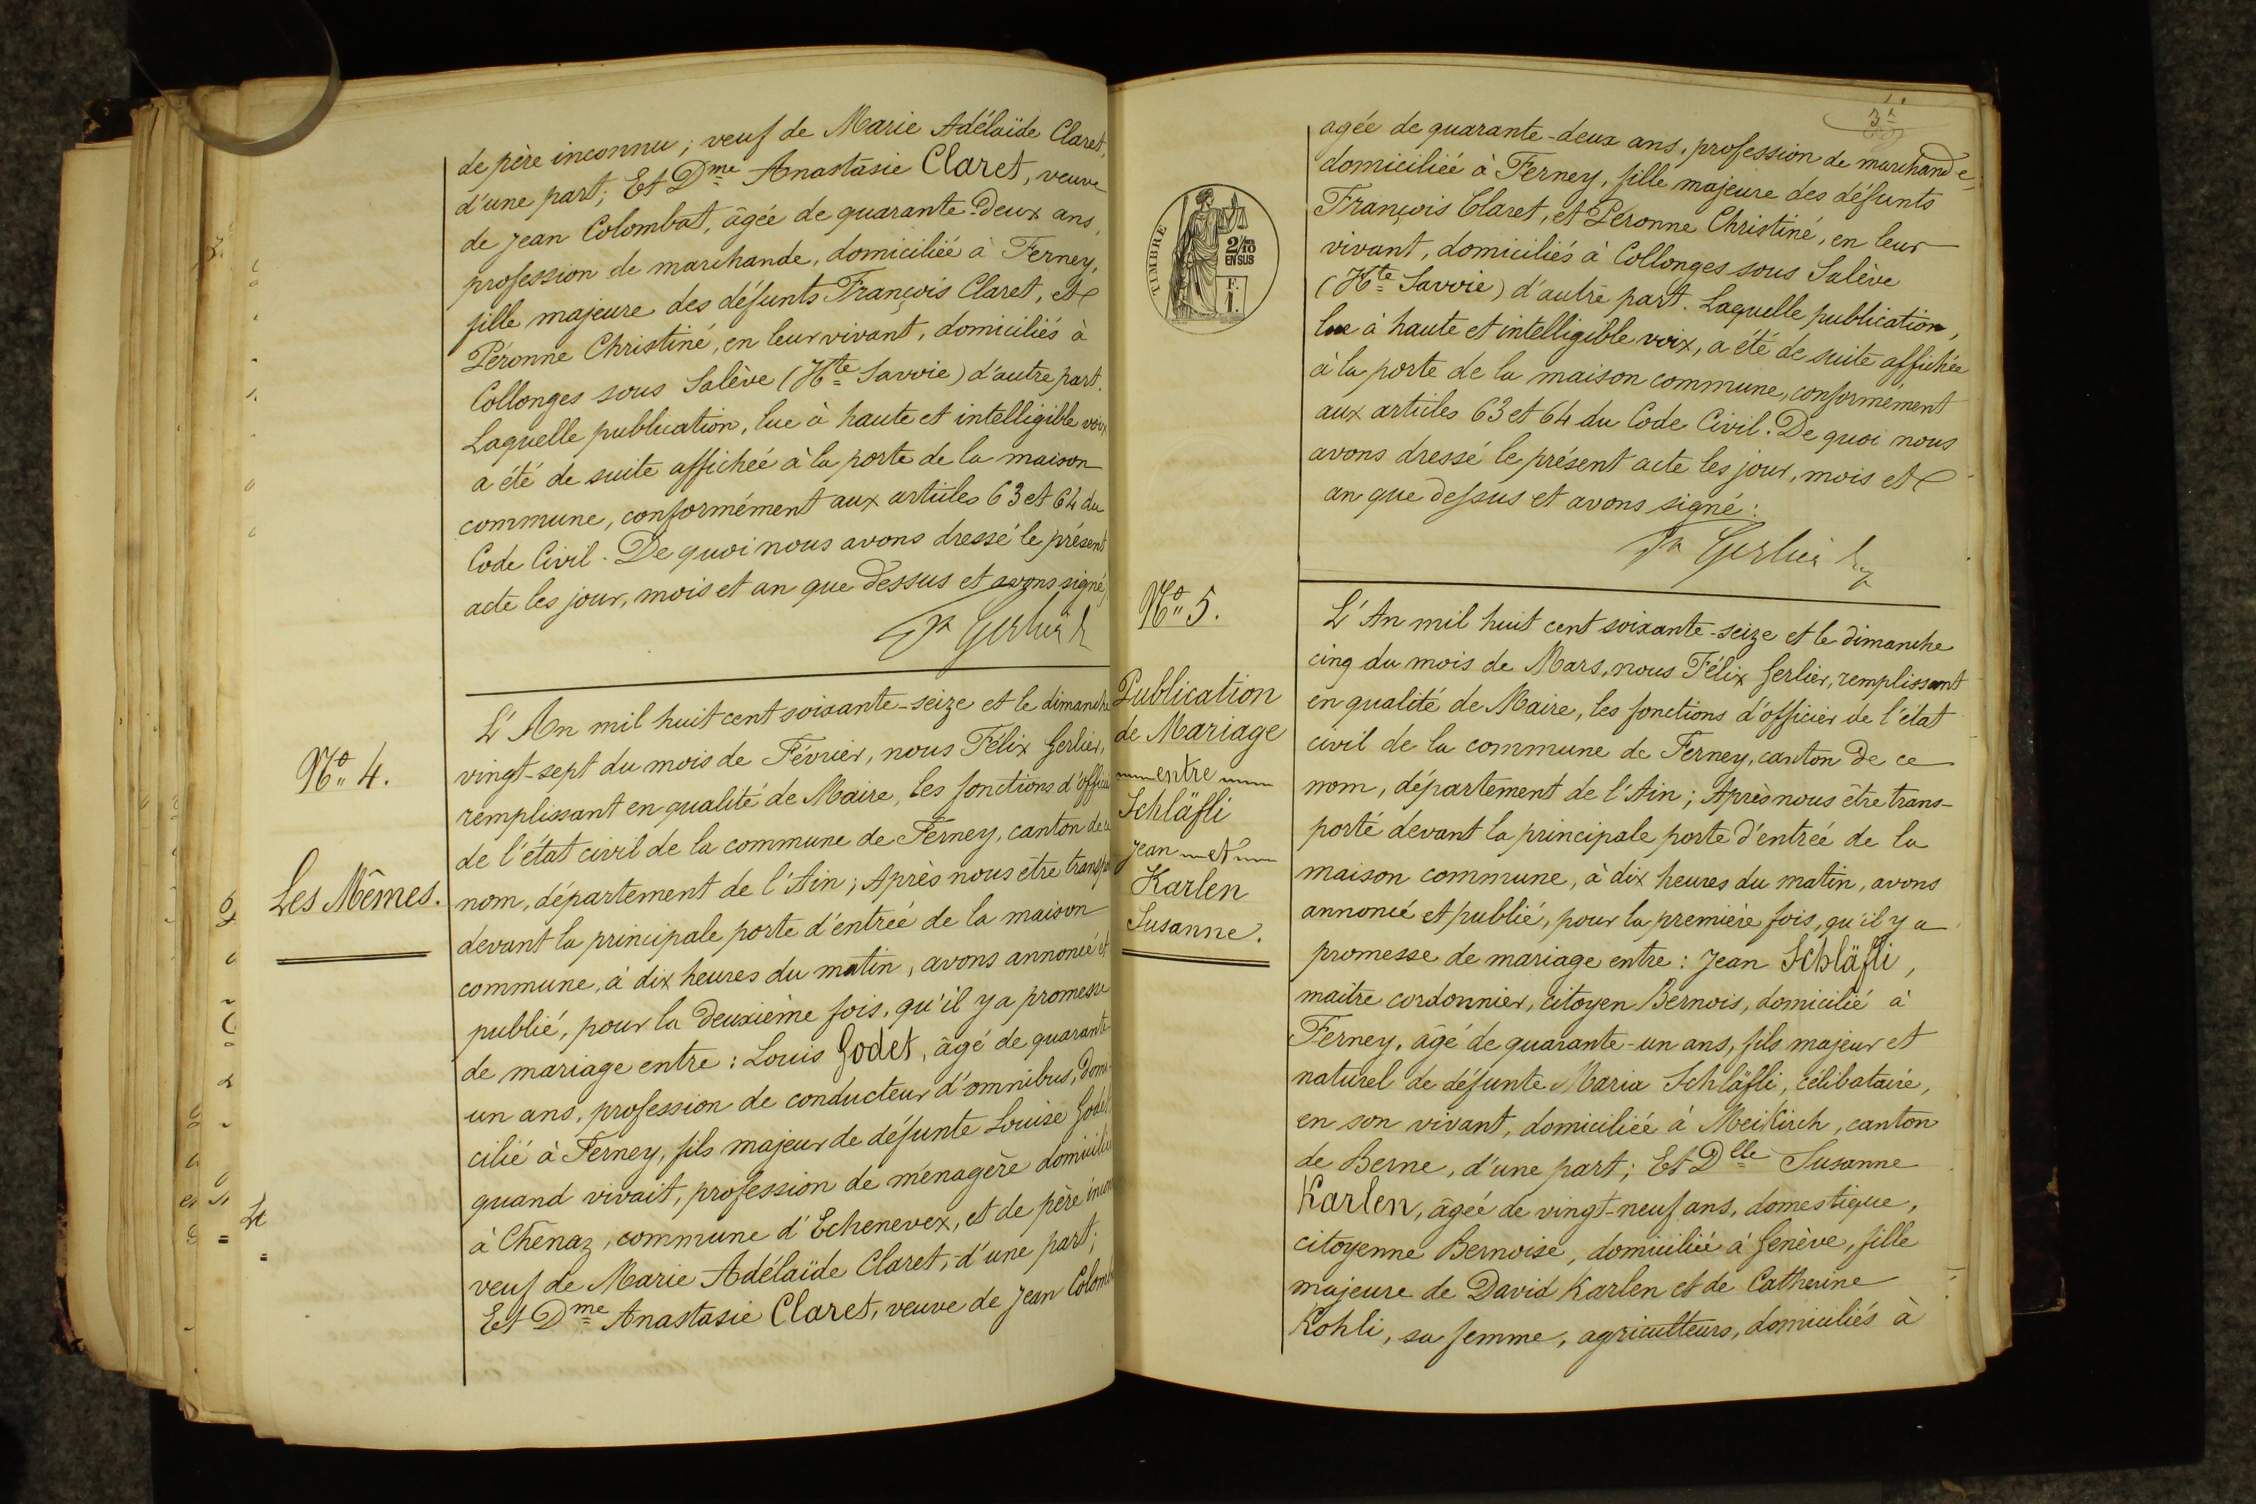 de père inconnu; veuf de Marie Adélaïde Claret,
d'une part; Et Dme Anastasie Claret, veuve
de Jean Colombat, âgée de quarante-deux ans,
profession de marchande, domiciliée à Ferney,
fille majeure des défunts François Claret, et
Péronne Christiné, en leur vivant, domiciliés à
Collonges sous Salève (Hte Savoie) d'autre part.
Laquelle publication, lue à haute et intelligible voix
a été de suite affichée à la porte de la maison
commune, conformément aux articles 63 et 64 du
Code Civil. De quoi nous avons dressé le présent
acte les jour, mois et an que dessus et avons signé,
Gerlier
No 4.
Les Mêmes.
L'An mil huit cent soixante-seize et le dimanche
vingt-sept du mois de Février, nous Félix Gerlier,
remplissant en qualité de Maire, les fonctions d'officier
de l'état civil de la commune de Ferney, canton de ce
nom, département de l'Ain; Après nous être transpor
devant la principale porte d'entrée de la maison
commune, à dix heures du matin, avons annoncé et
publié, pour la deuxième fois, qu'il y a promesse
de mariage entre: Louis Godet, âgé de quarante-
un ans, profession de conducteur d'omnibus, domi-
cilié à Ferney, fils majeur de défunte Louise Godet,
quand vivait, profession de ménagère domiciliée
à Chenaz, commune d'Echenevex, et de père incon
veuf de Marie Adélaïde Claret, d'une part;
Et Dme Anastasie Claret, veuve de Jean Colomb
3
TIMBRE
2/10
EN SUS
F.
1.
agée de quarante-deux ans, profession de marchande,
domiciliée à Ferney, fille majeure des défunts
François Claret, et Péronne Christiné, en leur
vivant, domiciliés à Collonges sous Salève
(Hte Savoie) d'autre part. Laquelle publication,
lue à haute et intelligible voix, a été de suite affichée
à la porte de la maison commune, conformément
aux articles 63 et 64 du Code Civil. De quoi nous
avons dressé le présent acte les jour, mois et
an que dessus et avons signé:
Gerlier
No 5.
Publication
de Mariage
entre
Schläfli
Jean et
Karlen
Susanne.
L'An mil huit cent soixante-seize et le dimanche
cinq du mois de Mars, nous Félix Gerlier, remplissant
en qualité de Maire, les fonctions d'officier de l'état
civil de la commune de Ferney, canton de ce
nom, département de l'Ain; Après nous être trans-
porté devant la principale porte d'entrée de la
maison commune, à dix heures du matin, avons
annoncé et publié, pour la première fois, qu'il y a
promesse de mariage entre: Jean Schläfli,
maitre cordonnier, citoyen Bernois, domicilié à
Ferney, âgé de quarante-un ans, fils majeur et
naturel de défunte Maria Schläfli, célibataire,
en son vivant, domiciliée à Meikirch, canton
de Berne, d'une part; Et Dlle Susanne
Karlen, âgée de vingt-neuf ans, domestique,
citoyenne Bernoise, domiciliée à Genève, fille
majeure de David Karlen et de Catherine
Kohli, sa femme, agriculteurs, domiciliés à